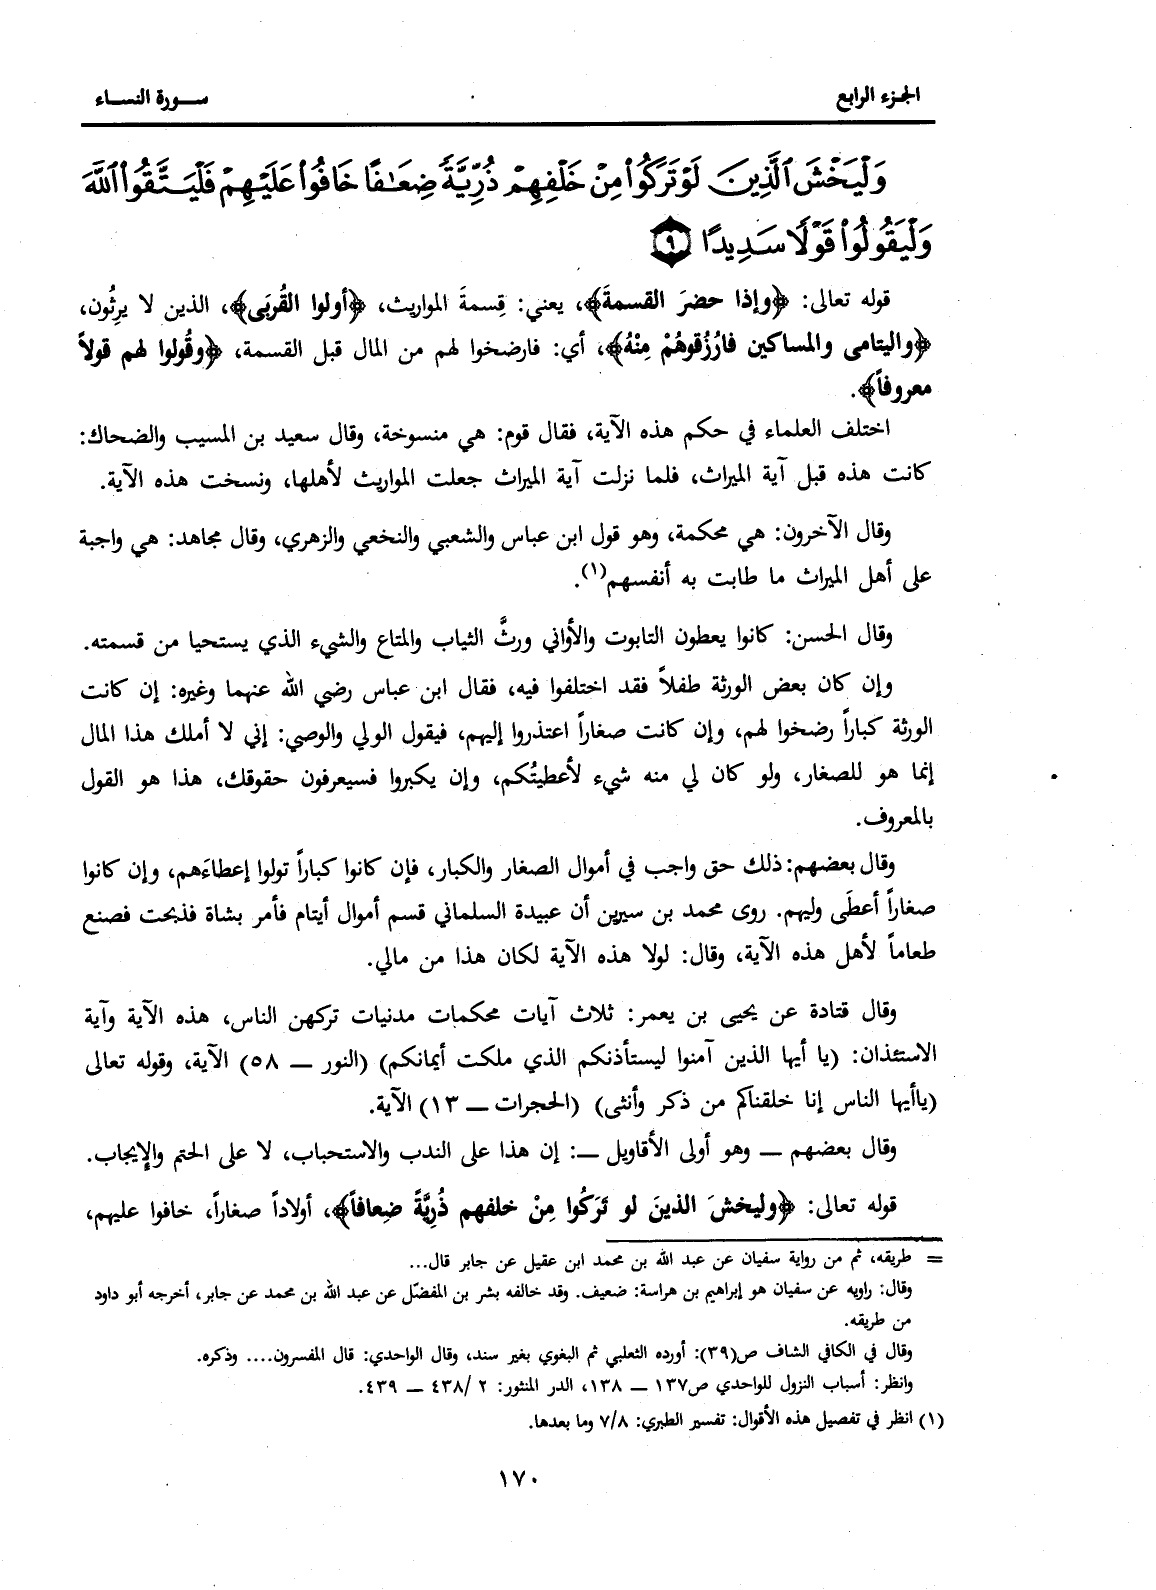 الجزء الرابع
سورة النساء
وَلْيَخْشَ ٱلَّذِينَ لَوْ تَرَكُوا۟ مِنْ خَلْفِهِمْ ذُرِّيَّةً ضِعَـٰفًا خَافُوا۟ عَلَيْهِمْ فَلْيَتَّقُوا۟ ٱللَّهَ
وَلْيَقُولُوا۟ قَوْلًا سَدِيدًا ٩
قوله تعالى: ﴿وإذا حضرَ القسمةَ﴾، يعني: قِسمةَ المواريث، ﴿أولوا القُربَى﴾، الذين لا يرِثُون،
﴿واليتامى والمساكين فارْزُقوهُمْ مِنْهُ﴾، أي: فارضخوا لهم من المال قبل القسمة، ﴿وقُولوا لهم قولاً
معروفاً﴾.
اختلف العلماء في حكم هذه الآية، فقال قوم: هي منسوخة، وقال سعيد بن المسيب والضحاك:
كانت هذه قبل آية الميراث، فلما نزلت آية الميراث جعلت المواريث لأهلها، ونسخت هذه الآية.
وقال الآخرون: هي محكمة، وهو قول ابن عباس والشعبي والنخعي والزهري، وقال مجاهد: هي واجبة
على أهل الميراث ما طابت به أنفسهم(١).
وقال الحسن: كانوا يعطون التابوت والأواني ورثَّ الثياب والمتاع والشيء الذي يستحيا من قسمته.
وإن كان بعض الورثة طفلاً فقد اختلفوا فيه، فقال ابن عباس رضي الله عنهما وغيره: إن كانت
الورثة كباراً رضخوا لهم، وإن كانت صغاراً اعتذروا إليهم، فيقول الولي والوصي: إني لا أملك هذا المال
إنما هو للصغار، ولو كان لي منه شيء لأعطيتُكم، وإن يكبروا فسيعرفون حقوقك، هذا هو القول
بالمعروف.
وقال بعضهم: ذلك حق واجب في أموال الصغار والكبار، فإن كانوا كباراً تولوا إعطاءَهم، وإن كانوا
صغاراً أعطَى وليهم. روى محمد بن سيرين أن عبيدة السلماني قسم أموال أيتام فأمر بشاة فذبحت فصنع
طعاماً لأهل هذه الآية، وقال: لولا هذه الآية لكان هذا من مالي.
وقال قتادة عن يحيى بن يعمر: ثلاث آيات محكمات مدنيات تركهن الناس، هذه الآية وآية
الاستئذان: (يا أيها الذين آمنوا ليستأذنكم الذي ملكت أيمانكم) (النور ــ ٥٨) الآية، وقوله تعالى
(ياأيها الناس إنا خلقناكم من ذكر وأنثى) (الحجرات ــ ١٣) الآية.
وقال بعضهم ــ وهو أولى الأقاويل ــ: إن هذا على الندب والاستحباب، لا على الحتم والإيجاب.
قوله تعالى: ﴿وليخشَ الذينَ لو تَرَكُوا مِنْ خلفهم ذُرِّيَّةً ضِعافاً﴾، أولاداً صغاراً، خافوا عليهم،
= طريقه، ثم من رواية سفيان عن عبد الله بن محمد ابن عقيل عن جابر قال...
وقال: راويه عن سفيان هو إبراهيم بن هراسة: ضعيف. وقد خالفه بشر بن المفضّل عن عبد الله بن محمد عن جابر، أخرجه أبو داود
من طريقه.
وقال في الكافي الشاف ص(٣٩): أورده الثعلبي ثم البغوي بغير سند، وقال الواحدي: قال المفسرون.... وذكره.
وانظر: أسباب النزول للواحدي ص١٣٧ ــ ١٣٨، الدر المنثور: ٢ /٤٣٨ ــ ٤٣٩.
(١) انظر في تفصيل هذه الأقوال: تفسير الطبري: ٧/٨ وما بعدها.
١٧٠